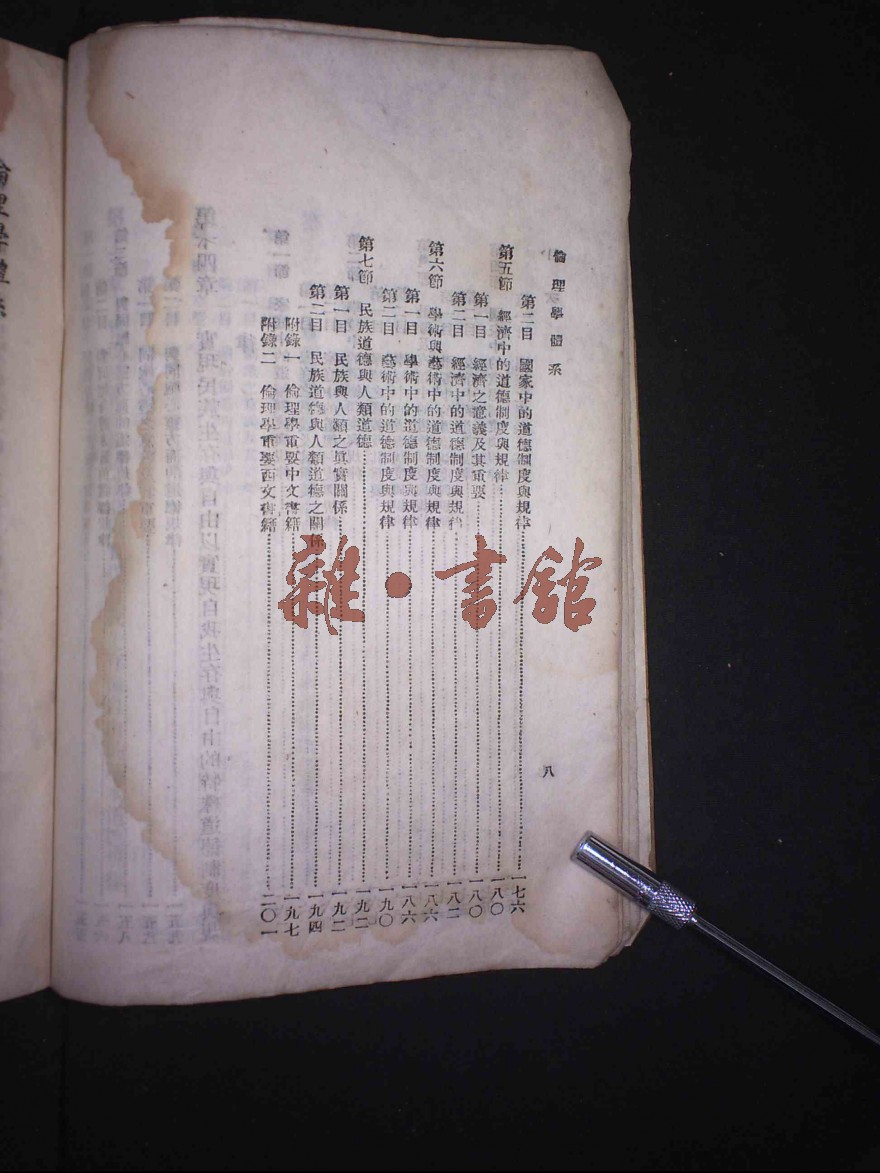 倫理學體系
第二目 國家中的道德制度與規律 一七六
第五節 經濟中的道德制度與規律 一八〇
第一目 經濟之意義及其重要 一八〇
第二目 經濟中的道德制度與規律 一八二
第六節 學術與藝術中的道德制度與規律 一八六
第一目 學術中的道德制度與規律 一八六
第二目 藝術中的道德制度與規律 一九〇
第七節 民族道德與人類道德 一九二
第一目 民族與人類之眞實關係 一九二
第二目 民族道德與人類道德之關係 一九四
附錄一 倫理學重要中文書籍 一九七
附錄二 倫理學重要西文書籍 二〇一
八
雜·書館
倫理學體系